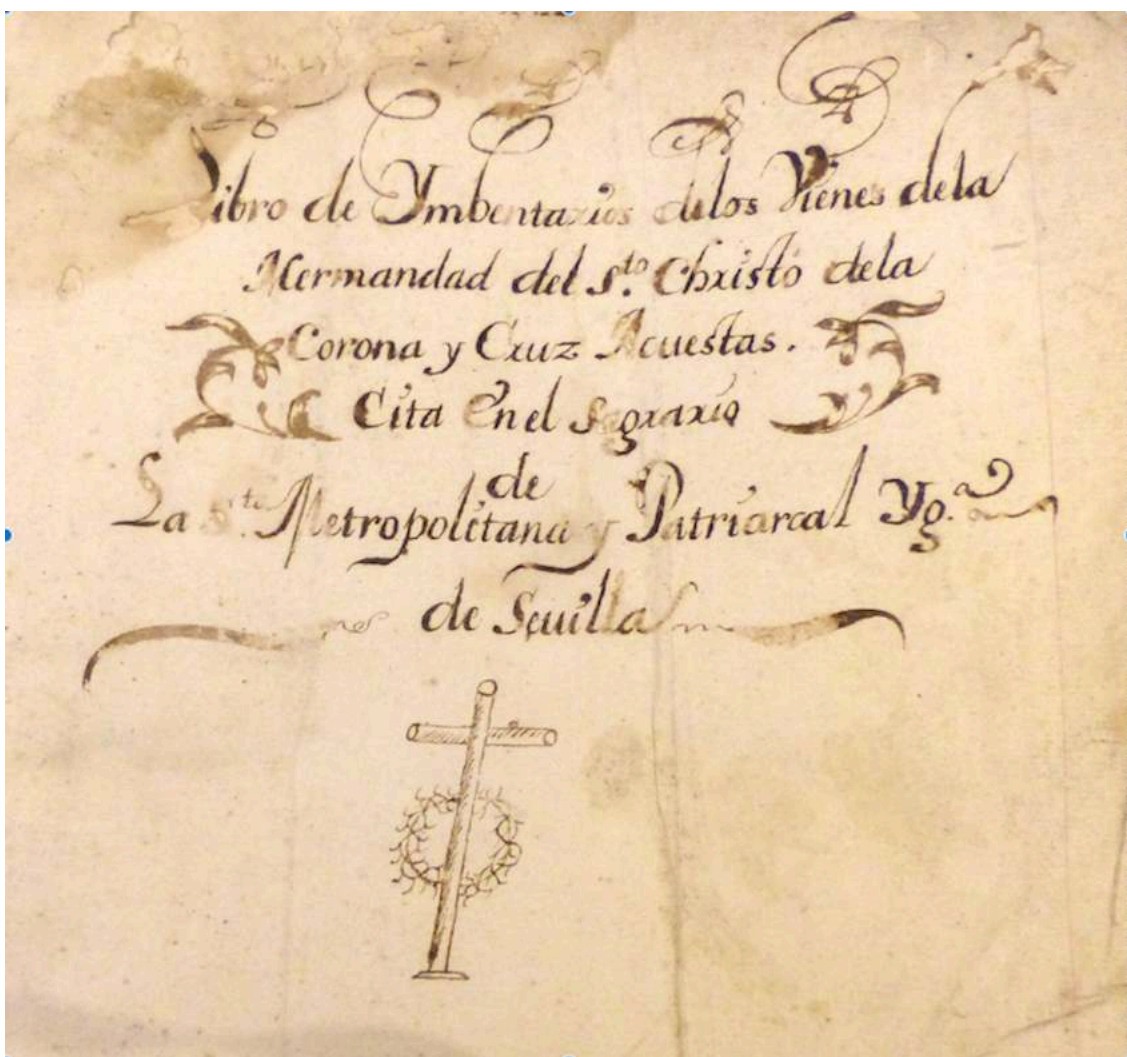 Libro de Ymbentarios delos Vienes dela
Hermandad del S.to Christo dela
Corona y Cruz Acuestas.
Cita Enel Sagrario
de
La S.ta Metropolitana y Patriarcal Yg.a
de Seuilla